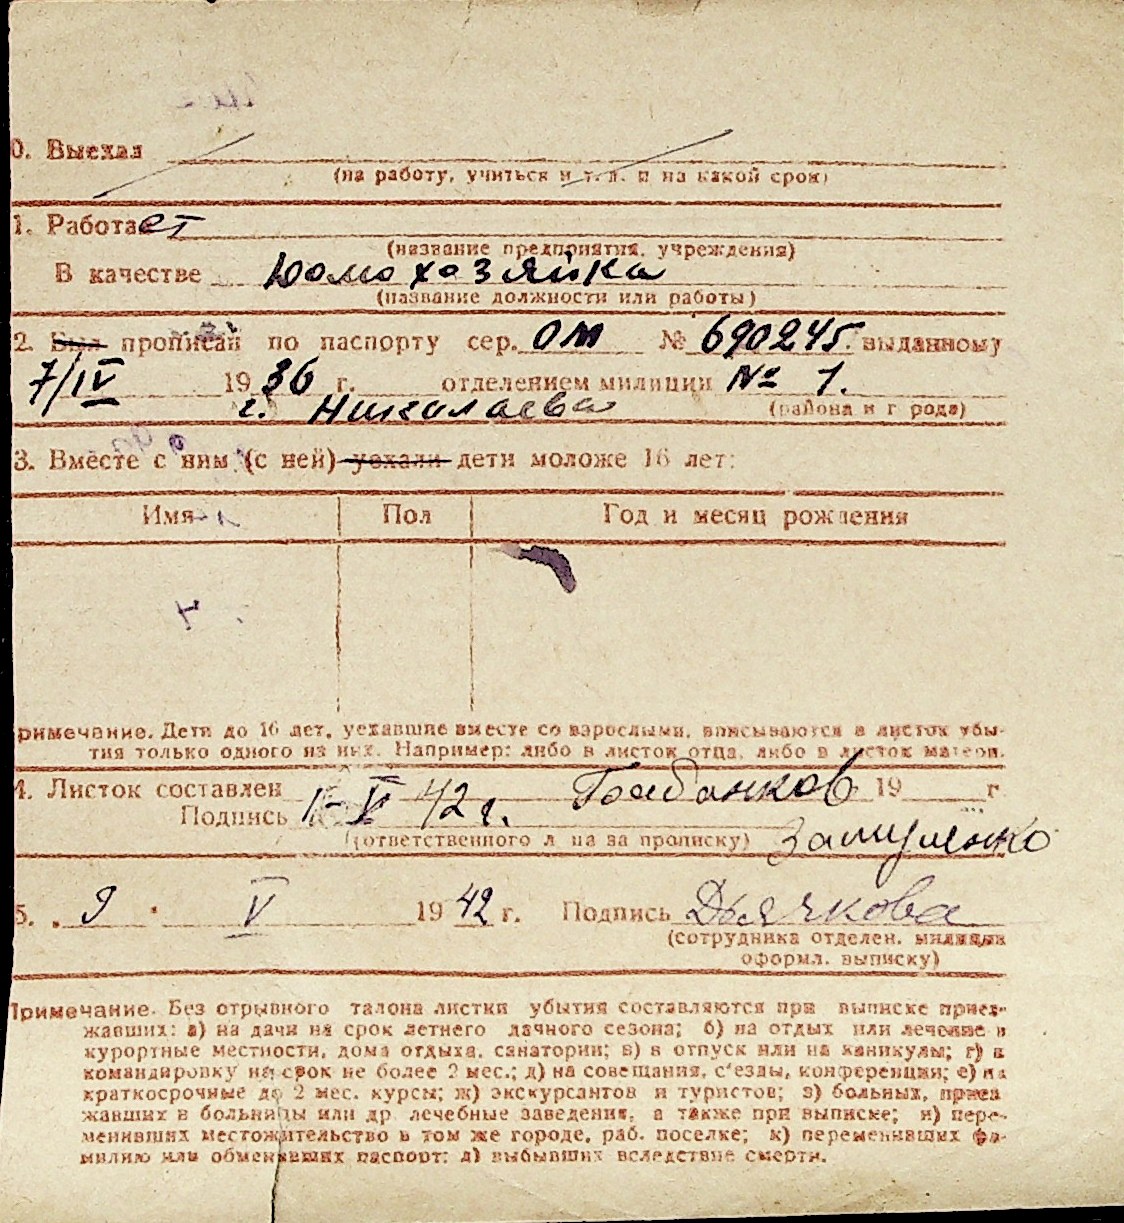 0. Выехал
(на работу, учиться и т. п. и на какой срок)
1. Работает
(название предприятия, учреждения)
В качестве Домохозяйка
(название должности или работы)
2. Был прописан по паспорту сер. ОМ № 690245. выданному
7/IV 1936 г. отделением милиции № 1.
г. Николаева (района и г рода)
3. Вместе с ним (с ней) уехали дети моложе 16 лет:
Имя Пол Год и месяц рождения
римечание. Дети до 16 лет, уехавшие вместе со взрослыми, вписываются в листок убы-
тия только одного из них. Например: либо в листок отца, либо в листок матери.
4. Листок составлен 1-V 42 г. 19 г.
Подпись
(ответственного л ца за прописку)
5. 9 V 1942 г. Подпись Дьячкова
(сотрудника отделен. милиции
оформл. выписку)
Примечание. Без отрывного талона листки убытия составляются при выписке приез-
жавших: а) на дачи на срок летнего дачного сезона; б) на отдых или лечение в
курортные местности, дома отдыха, санатории; в) в отпуск или на каникулы; г) в
командировку на срок не более 2 мес.; д) на совещания, с'езды, конференции; е) на
краткосрочные до 2 мес. курсы; ж) экскурсантов и туристов; з) больных, приез
жавших в больницы или др. лечебные заведения, а также при выписке; и) пере-
менивших местожительство в том же городе, раб. поселке; к) переменивших фа-
милию или обменявших паспорт; л) выбывших вследствие смерти.